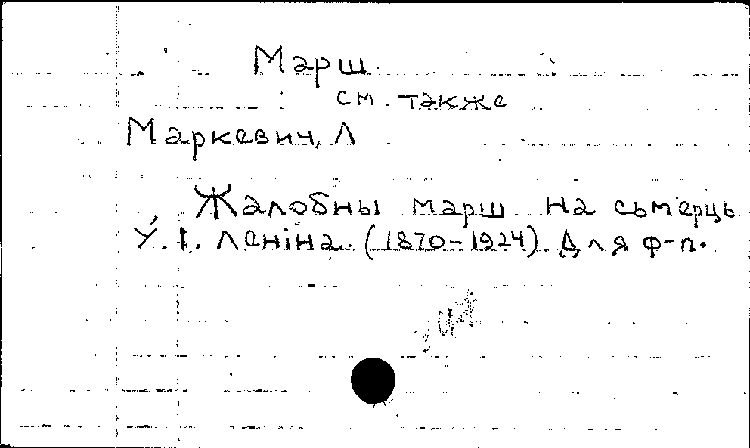 Марш
см. также
Маркевич, Л
Жалобны марш на сьмерць
У. І. Леніна. (1870-1924). Для ф-п.